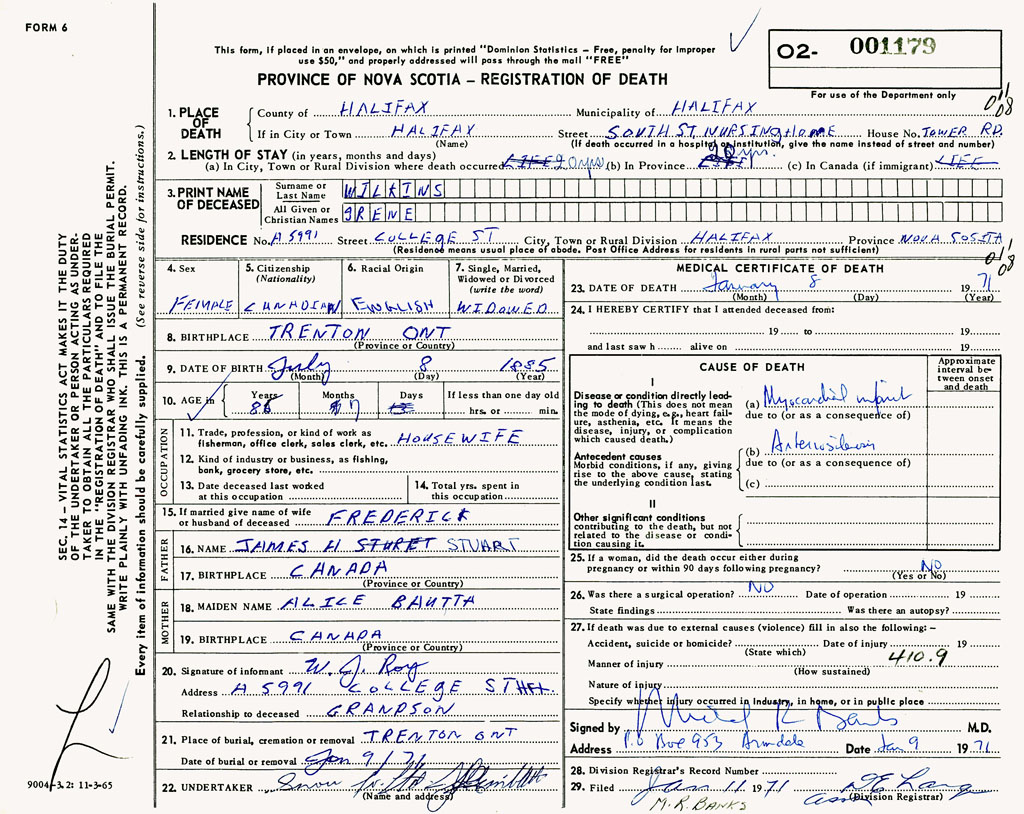 FORM 6
This form, if placed in an envelope, on which is printed "Dominion Statistics – Free, penalty for improper
use $50," and properly addressed will pass through the mail "FREE"
PROVINCE OF NOVA SCOTIA – REGISTRATION OF DEATH
02- 001179
For use of the Department only
011
08
SEC. 14 – VITAL STATISTICS ACT MAKES IT THE DUTY
OF THE UNDERTAKER OR PERSON ACTING AS UNDER-
TAKER TO OBTAIN ALL THE PARTICULARS REQUIRED
IN THE "REGISTRATION OF DEATH" AND TO FILE THE
SAME WITH THE DIVISION REGISTRAR WHO SHALL ISSUE THE BURIAL PERMIT.
WRITE PLAINLY WITH UNFADING INK. THIS IS A PERMANENT RECORD.
Every item of information should be carefully supplied. (See reverse side for instructions.)
1. PLACE OF DEATH
County of HALIFAX Municipality of HALIFAX
If in City or Town HALIFAX Street SOUTH ST. NURSING HOME House No. TOWER RD.
(Name) (If death occurred in a hospital or institution, give the name instead of street and number)
2. LENGTH OF STAY (in years, months and days)
(a) In City, Town or Rural Division where death occurred 20 yrs (b) In Province 20 yrs. (c) In Canada (if immigrant) LIFE
3. PRINT NAME OF DECEASED
Surname or Last Name WILKINS
All Given or Christian Names IRENE
RESIDENCE No. A 5991 Street COLLEGE ST City, Town or Rural Division HALIFAX Province NOVA SOSITA
(Residence means usual place of abode. Post Office Address for residents in rural parts not sufficient)
011
08
4. Sex FEMALE
5. Citizenship (Nationality) CANADIAN
6. Racial Origin ENGLISH
7. Single, Married, Widowed or Divorced (write the word) WIDOWED
8. BIRTHPLACE TRENTON ONT
(Province or Country)
9. DATE OF BIRTH July 8 1885
(Month) (Day) (Year)
10. AGE in Years Months Days If less than one day old
85 hrs. or min.
OCCUPATION
11. Trade, profession, or kind of work as
fisherman, office clerk, sales clerk, etc. HOUSEWIFE
12. Kind of industry or business, as fishing,
bank, grocery store, etc.
13. Date deceased last worked
at this occupation
14. Total yrs. spent in
this occupation
15. If married give name of wife
or husband of deceased FREDERICK
FATHER
16. NAME JAMES H STURET STUART
17. BIRTHPLACE CANADA
(Province or Country)
MOTHER
18. MAIDEN NAME ALICE BAUTTA
19. BIRTHPLACE CANADA
(Province or Country)
20. Signature of informant W. J. Roy
Address A 5991 COLLEGE ST HFX.
Relationship to deceased GRANDSON
21. Place of burial, cremation or removal TRENTON ONT
Date of burial or removal Jan 9/71
22. UNDERTAKER Snow
(Name and address)
9004-3.2: 11-3-65
MEDICAL CERTIFICATE OF DEATH
23. DATE OF DEATH January 8 1971
(Month) (Day) (Year)
24. I HEREBY CERTIFY that I attended deceased from:
19 to 19
and last saw h alive on 19
CAUSE OF DEATH
Approximate interval between onset and death
I
Disease or condition directly lead-
ing to death (This does not mean
the mode of dying, e.g., heart fail-
ure, asthenia, etc. It means the
disease, injury, or complication
which caused death.)
(a) Myocardial infarct
due to (or as a consequence of)
Antecedent causes
Morbid conditions, if any, giving
rise to the above cause, stating
the underlying condition last.
(b) Arteriosclerosis
due to (or as a consequence of)
(c)
II
Other significant conditions
contributing to the death, but not
related to the disease or condi-
tion causing it.
25. If a woman, did the death occur either during
pregnancy or within 90 days following pregnancy? NO
(Yes or No)
26. Was there a surgical operation? NO Date of operation 19
State findings Was there an autopsy?
27. If death was due to external causes (violence) fill in also the following: –
Accident, suicide or homicide? Date of injury 19
(State which)
410.9
Manner of injury
(How sustained)
Nature of injury
Specify whether injury occurred in Industry, in home, or in public place
Signed by M.D.
Address P.O Box 953 Armdale Date Jan 9 1971
28. Division Registrar's Record Number
29. Filed Jan 11 1971
(Division Registrar)
M.R. BANKS